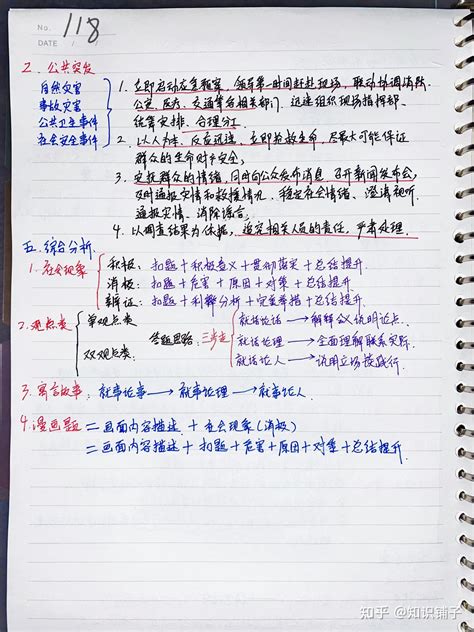 No.
118
DATE
2. 公共突发
自然灾害
事故灾害
公共卫生事件
社会安全事件
1. 立即启动应急预案,领导第一时间赶赴现场,联动协调消防
公安、医疗、交通等各相关部门,迅速组织现场指挥部,
统筹安排,合理分工
2. 以人为本,反应迅速,立即抢救生命,尽最大可能保证
群众的生命财产安全;
3. 安抚群众的情绪,同时向公众发布消息,召开新闻发布会,
及时通报灾情和救援情况,稳定社会情绪、澄清视听
通报灾情、消除谣言;
4. 以调查结果为依据,追究相关人员的责任,严肃处理.
五. 综合分析.
1. 社会现象
积极: 扣题+积极意义+贯彻落实+总结提升.
消极: 扣题+危害+原因+对策+总结提升.
辩证: 扣题+利弊分析+完善举措+总结提升.
2. 观点类
单观点类
双观点类:
答题思路: 三步走
就话论话→解释含义说明论点.
就话论理→全面理解联系实际
就话论人→说明立场谈践行.
3. 寓言故事: 就事论事→就事论理→就事论人.
4. 漫画题=画面内容描述+社会现象(消极)
=画面内容描述+扣题+危害+原因+对策+总结提升.
知乎 @知识铺子